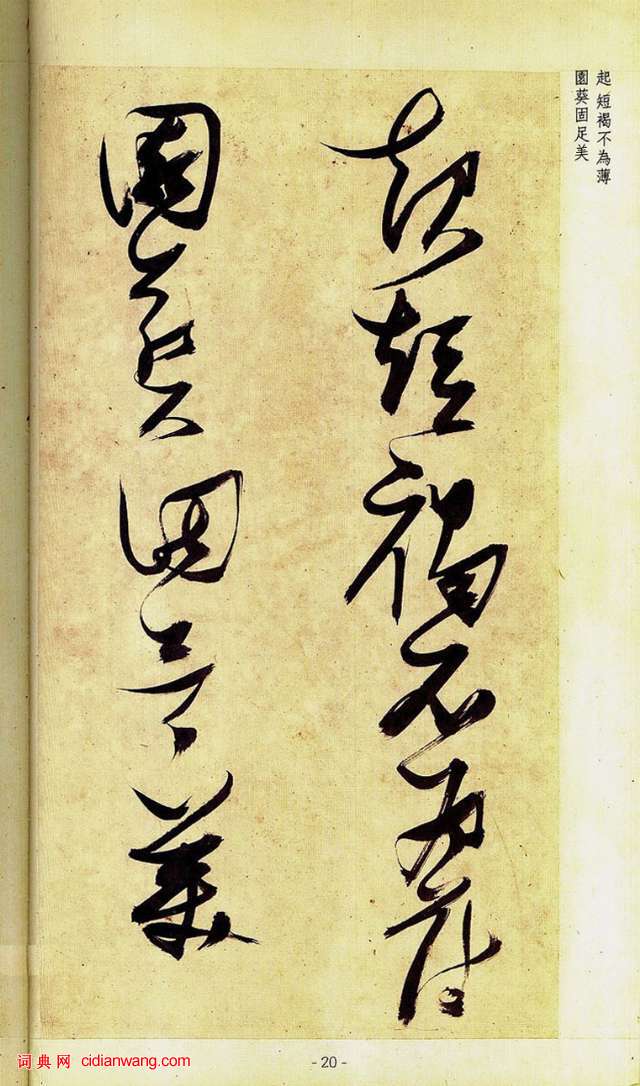 起 短褐不為薄
園葵固足美
起短褐不為薄
園葵固足美
- 20 -
词典网 cidianwang.com